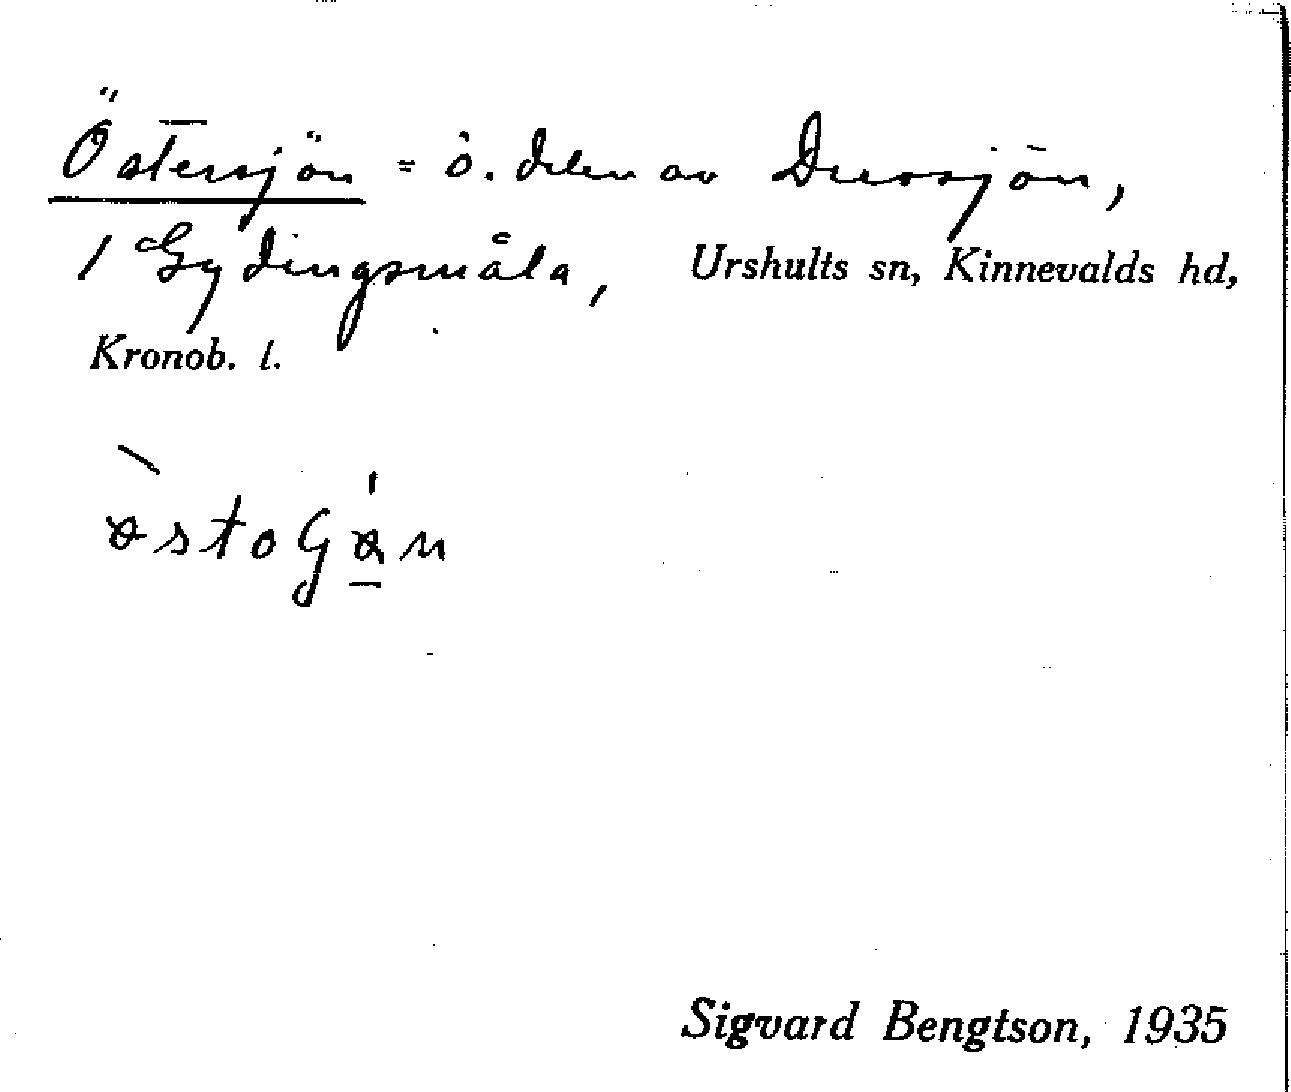 Östersjön = ö. delen av Duvsjön,
1 Gydingsmåla, Urshults sn, Kinnevalds hd,
Kronob. l.
Sigvard Bengtson, 1935